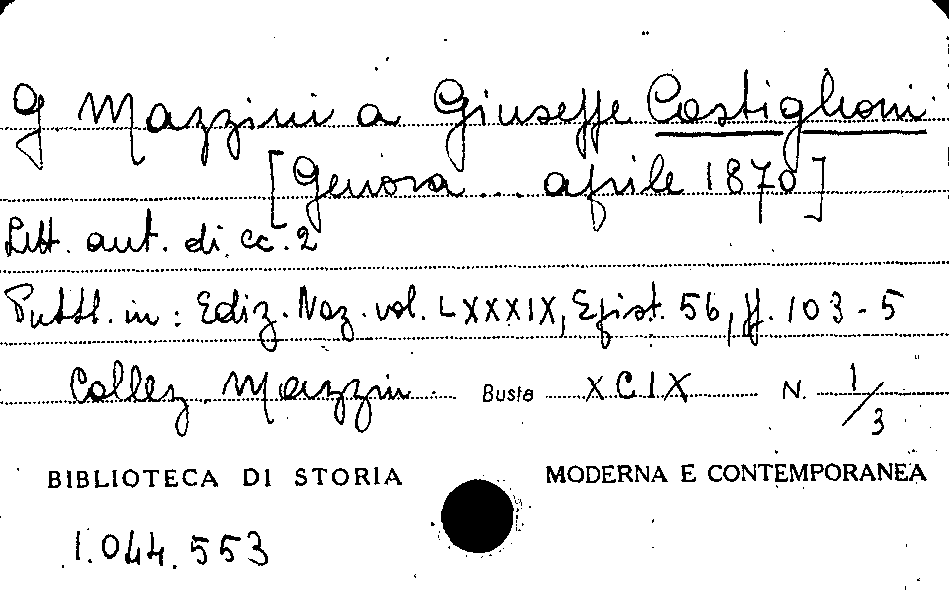 G Mazzini a Giuseffe Castiglioni
[Genova ... aprile 1870]
Lett. aut. di cc. 2
Pubbl. in: Ediz. Naz. vol. LXXXIX, Epist. 56, pp. 103-5
Collez. Mazzini Busta XCIX N. 1/3
BIBLIOTECA DI STORIA MODERNA E CONTEMPORANEA
1.044.553